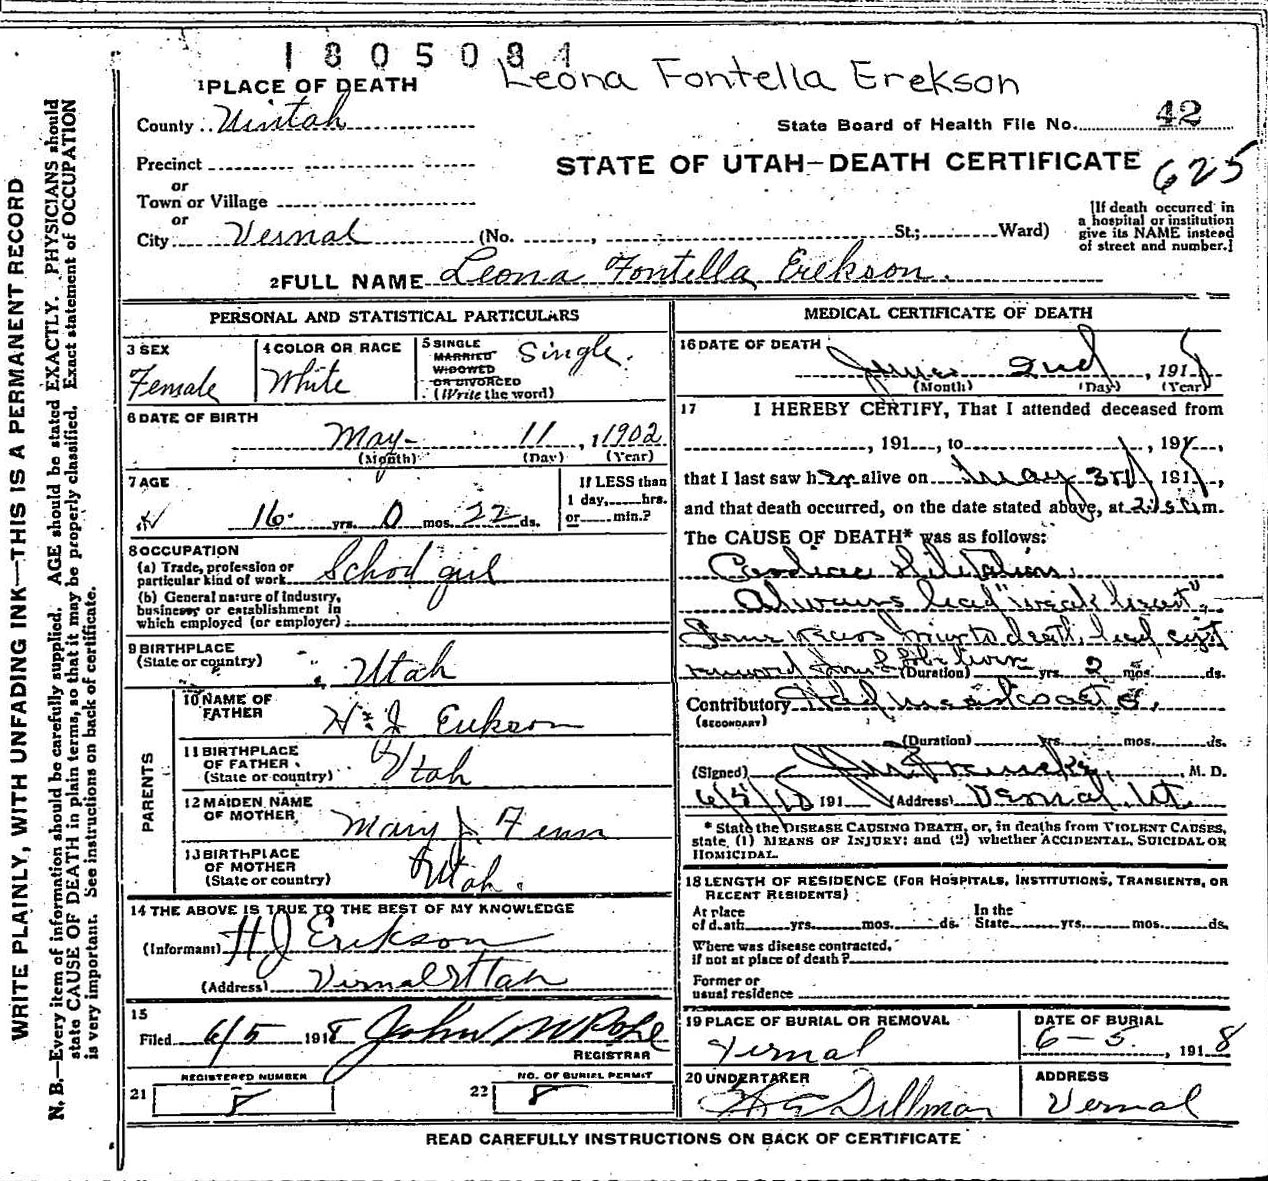 1805084
Leona Fontella Erekson
1 PLACE OF DEATH
County Uintah
State Board of Health File No. 42
Precinct
STATE OF UTAH—DEATH CERTIFICATE
625
or
Town or Village
or
City Vernal (No. , St.; Ward)
[If death occurred in a hospital or institution give its NAME instead of street and number.]
2 FULL NAME Leona Fontella Erikson.
PERSONAL AND STATISTICAL PARTICULARS
3 SEX
Female
4 COLOR OR RACE
White
5 SINGLE
MARRIED
WIDOWED
OR DIVORCED
(Write the word)
Single.
6 DATE OF BIRTH
May 11, 1902
(Month) (Day) (Year)
7 AGE
16 yrs. 0 mos. 22 ds.
If LESS than
1 day, hrs.
or min.?
8 OCCUPATION
(a) Trade, profession or
particular kind of work School girl
(b) General nature of industry,
business or establishment in
which employed (or employer)
9 BIRTHPLACE
(State or country) Utah
PARENTS
10 NAME OF
FATHER H. J. Erikson
11 BIRTHPLACE
OF FATHER
(State or country) Utah
12 MAIDEN NAME
OF MOTHER Mary J.
13 BIRTHPLACE
OF MOTHER
(State or country) Utah.
14 THE ABOVE IS TRUE TO THE BEST OF MY KNOWLEDGE
(Informant) H J Erikson
(Address) Vernal Utah
15
Filed 6/5 1918 John N Pope
REGISTRAR
REGISTERED NUMBER
21 8
NO. OF BURIAL PERMIT
22 8
MEDICAL CERTIFICATE OF DEATH
16 DATE OF DEATH
June 2nd, 191
(Month) (Day) (Year)
17 I HEREBY CERTIFY, That I attended deceased from
, 191 , to , 191 ,
that I last saw her alive on May 3rd, 191 ,
and that death occurred, on the date stated above, at m.
The CAUSE OF DEATH* was as follows:
Cardiac Dilatation.
Always had "weak heart",
to death, had
(Duration) yrs. 2 mos. ds.
Contributory Had
(SECONDARY)
(Duration) yrs. mos. ds.
(Signed) M. D.
191 (Address) Vernal, Ut.
* State the DISEASE CAUSING DEATH, or, in deaths from VIOLENT CAUSES,
state (1) MEANS OF INJURY; and (2) whether ACCIDENTAL, SUICIDAL OR
HOMICIDAL.
18 LENGTH OF RESIDENCE (FOR HOSPITALS, INSTITUTIONS, TRANSIENTS, OR
RECENT RESIDENTS)
At place of death yrs. mos. ds. In the State yrs. mos. ds.
Where was disease contracted,
if not at place of death?
Former or
usual residence
19 PLACE OF BURIAL OR REMOVAL
Vernal
DATE OF BURIAL
6-5. , 1918
20 UNDERTAKER
Dillman
ADDRESS
Vernal
READ CAREFULLY INSTRUCTIONS ON BACK OF CERTIFICATE
WRITE PLAINLY, WITH UNFADING INK—THIS IS A PERMANENT RECORD
N. B.—Every item of information should be carefully supplied. AGE should be stated EXACTLY. PHYSICIANS should
state CAUSE OF DEATH in plain terms, so that it may be properly classified. Exact statement of OCCUPATION
is very important. See instructions on back of certificate.